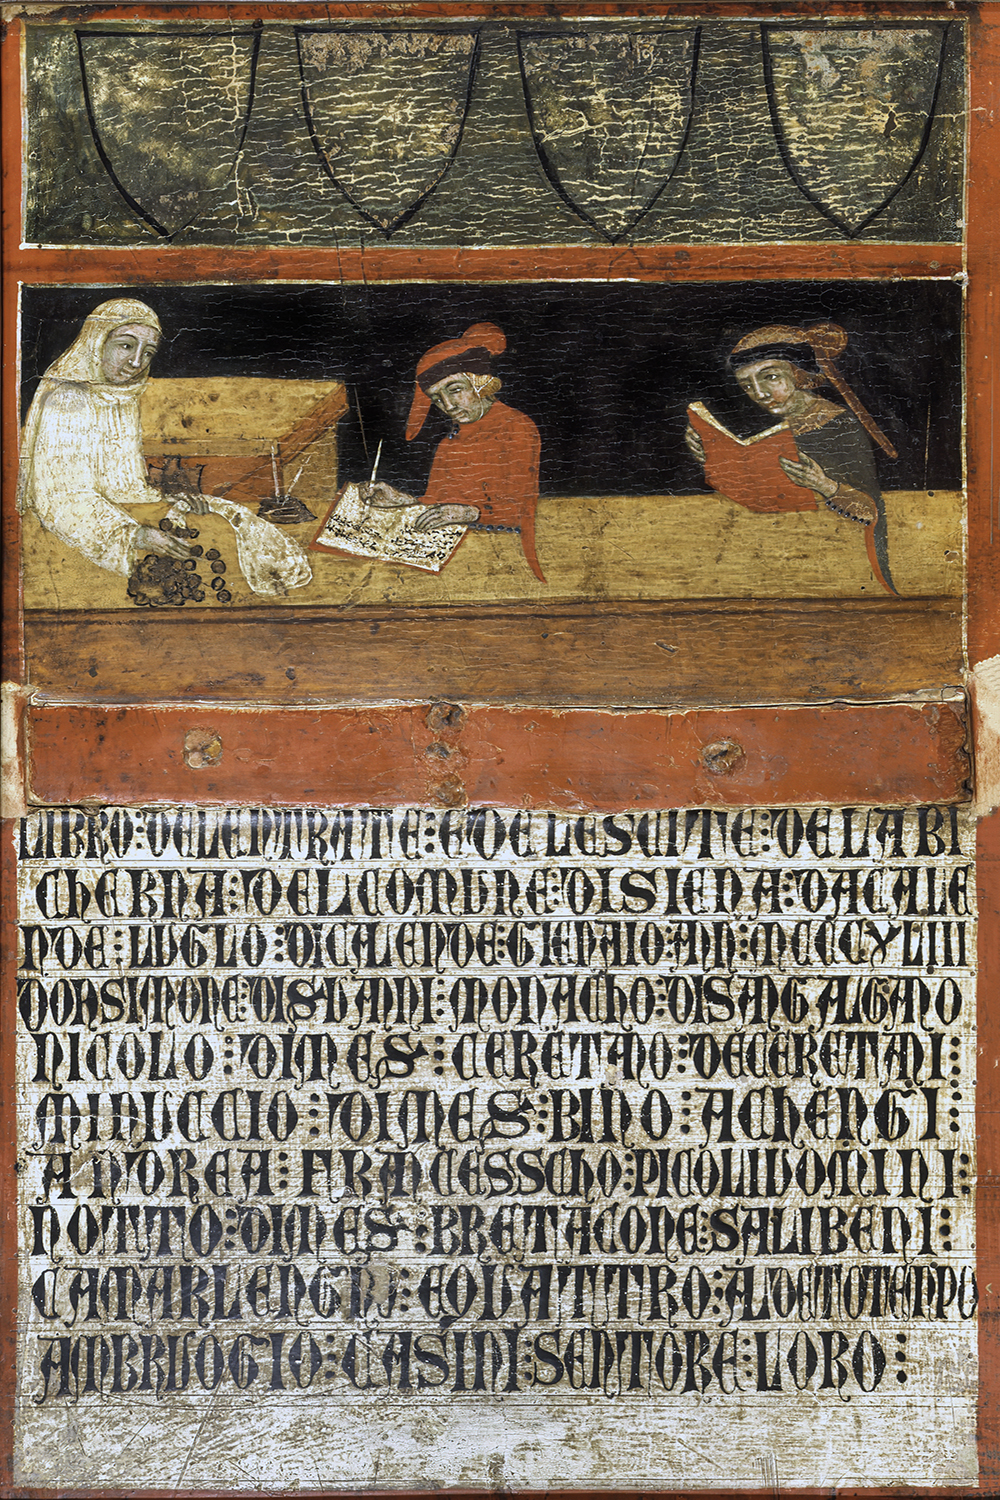 LIBRO : DELENTRATE : E DE LESCITE : DE LA BI
CHERNA : DEL COMUNE : DI SIENA : DA CALE
NDE : LUGLO : DI CALENDE : GIENAIO : ANN : MCCCXLIII
DON SIMONE : DI S : VANNI : MONACHO : DI SANGALGANO
NICOLO : DI MES : CERETANO : DE CERETANI :
MINUCCIO : DI MES : BINO : ACHENGI :
ANDREA : FRANCESSCHO : PICOLUOMINI :
NOTTO : DI MES : BRETACONE : SALIBENI :
CAMARLENGHI : E QUATTRO : AL DETTO TENPO
AMBRUOGIO : CASINI : SENTORE : LORO :